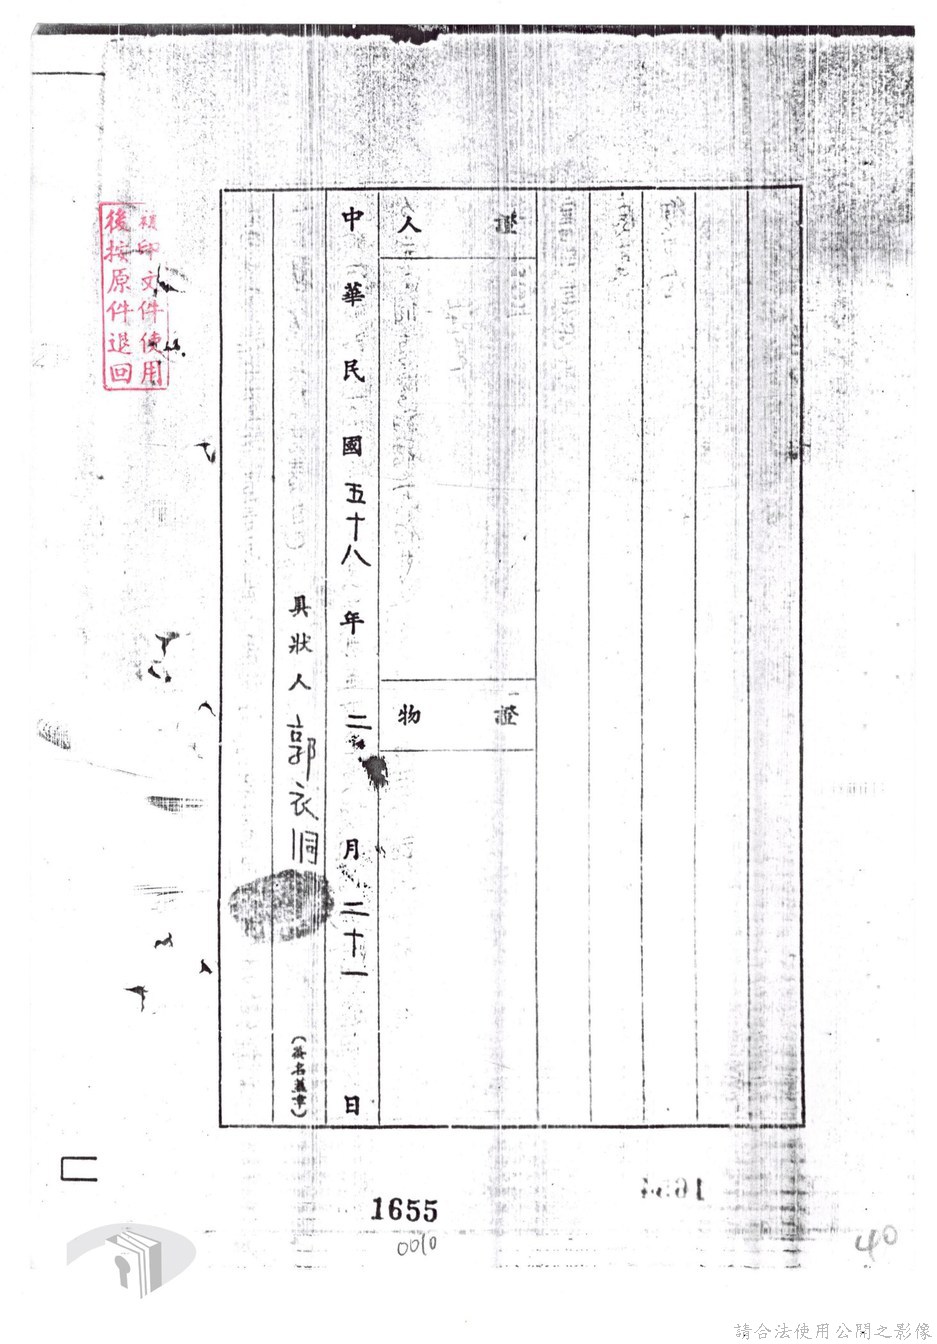 證人
證物
中華民國五十八年二月二十一日
具狀人 郭衣洞
(簽名蓋章)
複印文件使用
後按原件退回
1655
0010
40
請合法使用公開之影像